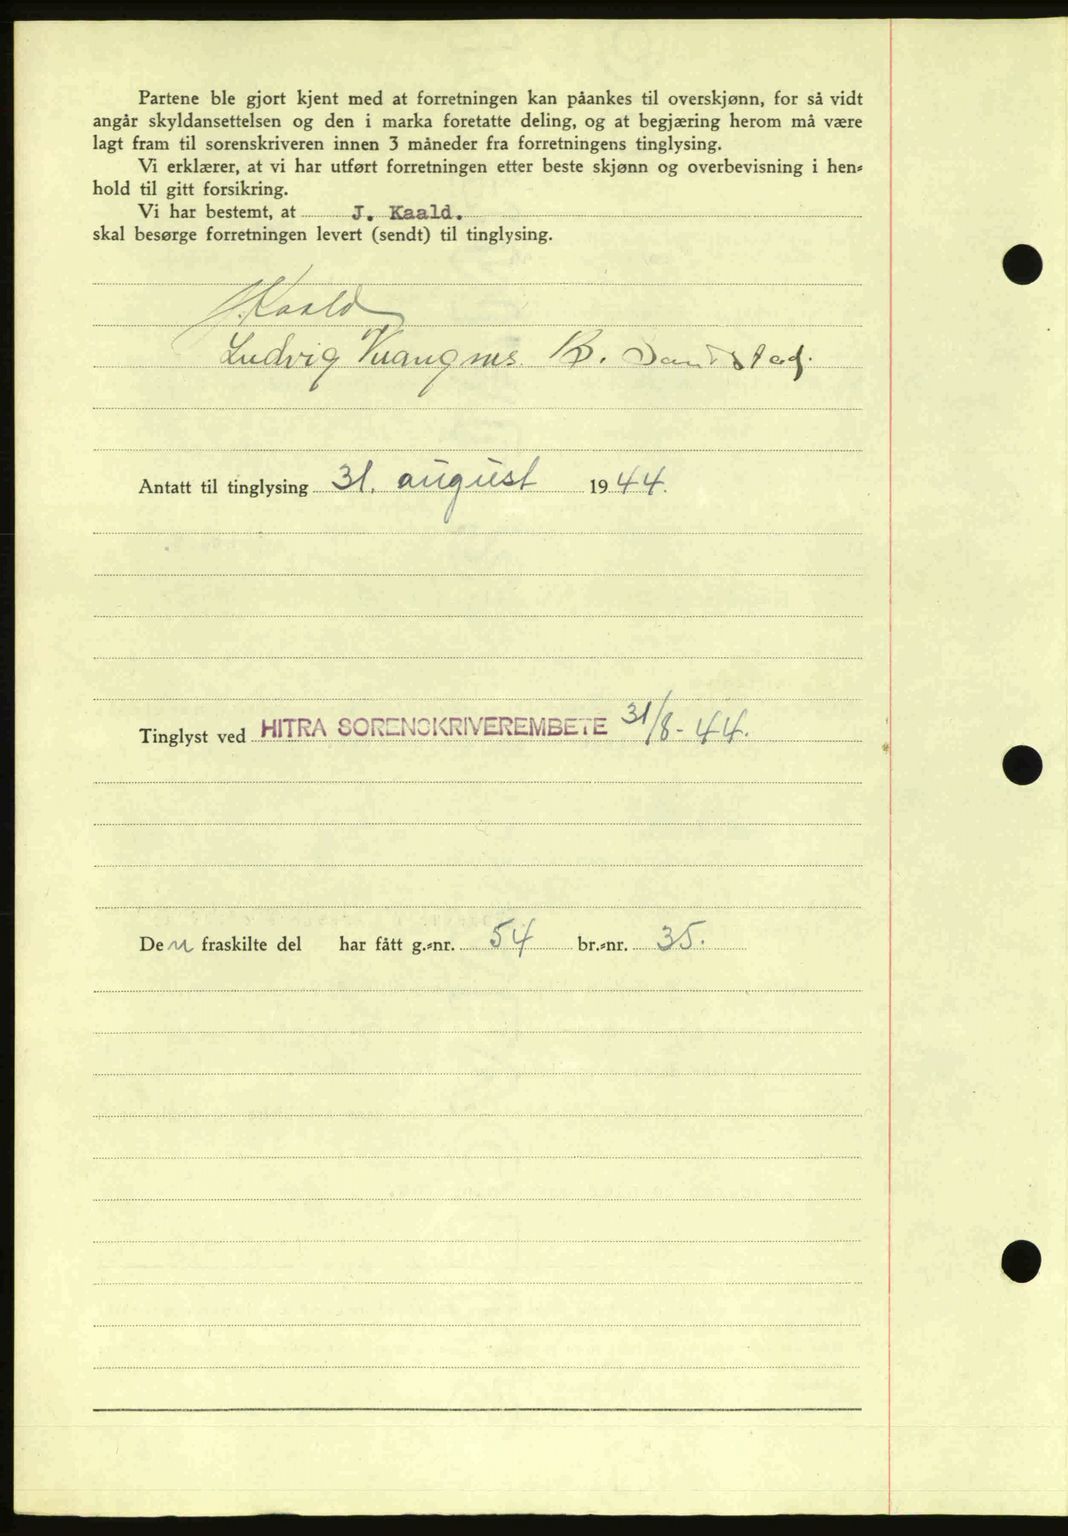 Partene ble gjort kjent med at forretningen kan påankes til overskjønn, for så vidt
angår skyldansettelsen og den i marka foretatte deling, og at begjæring herom må være
lagt fram til sorenskriveren innen 3 måneder fra forretningens tinglysing.
Vi erklærer, at vi har utført forretningen etter beste skjønn og overbevisning i hen=
hold til gitt forsikring.
Vi har bestemt, at J. Kaald.
skal besørge forretningen levert (sendt) til tinglysing.
J. Kaald
Ludvig
Antatt til tinglysing 31. august 1944.
Tinglyst ved HITRA SORENSKRIVEREMBETE 31/8-44.
Den fraskilte del har fått g.=nr. 54 br.=nr. 35.